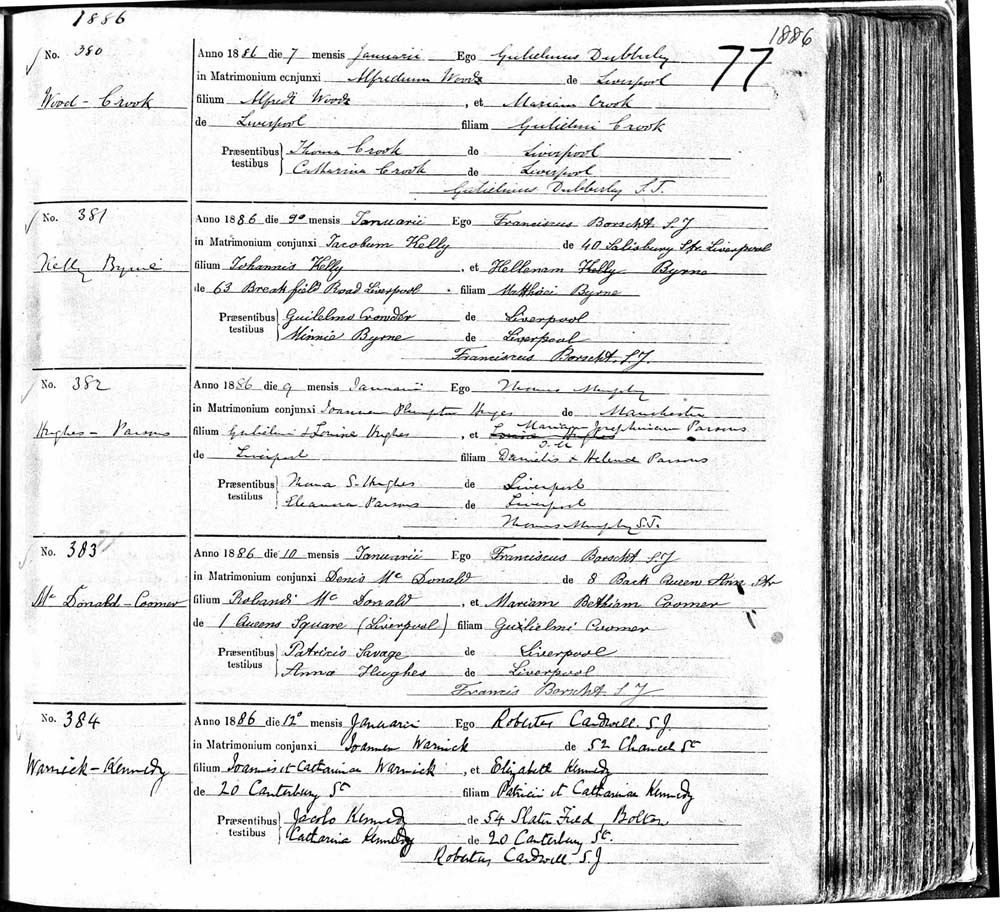 1886
1886
77
No. 380
Wood - Crook
Anno 1886 die 7 mensis Januarii Ego Gulielmus Dubberley
in Matrimonium conjunxi Alfredum Wood de Liverpool
filium Alfredi Wood , et Mariam Crook
de Liverpool filiam Gulielmi Crook
Præsentibus testibus Thoma Crook de Liverpool
Catharina Crook de Liverpool
Gulielmus Dubberley S.J.
No. 381
Kelly Byrne
Anno 1886 die 9º mensis Januarii Ego Franciscus Borscht. S.J
in Matrimonium conjunxi Jacobum Kelly de 40 Salisbury Str. Liverpool
filium Johannis Kelly , et Hellenam Kelly Byrne
de 63 Breakfield Road Liverpool filiam Matthaei Byrne
Præsentibus testibus Guilelmo Crowder de Liverpool
Minnie Byrne de Liverpool
Franciscus Borscht. S.J.
No. 382
Hughes - Parsons
Anno 1886 die 9 mensis Januarii Ego Thomas Murphy
in Matrimonium conjunxi Joannem Plumpton Huges de Manchester
filium Gulielmi & Louisae Hughes , et Louisa Hughes Mariam Josephinam Parsons
T.M
de Liverpool filiam Danielis & Helenae Parsons
Præsentibus testibus Thoma S. Hughes de Liverpool
Eleanora Parsons de Liverpool
Thomas Murphy S.J.
No. 383
Mc Donald - Coomer
Anno 1886 die 10 mensis Januarii Ego Franciscus Borscht S.J
in Matrimonium conjunxi Denis Mc Donald de 8 Back Queen Ann Str
filium Rolandi Mc Donald , et Mariam Bethiam Coomer
de 1 Queens Square (Liverpool) filiam Guilielmi Coomer
Præsentibus testibus Patricio Savage de Liverpool
Anna Hughes de Liverpool
Francis Borscht S J
No. 384
Warnick - Kennedy
Anno 1886 die 12º mensis Januarii Ego Robertus Cardwell S.J.
in Matrimonium conjunxi Joannem Warnick de 52 Chancel St
filium Joannis et Catharinae Warnick , et Elizabeth Kennedy
de 20 Canterbury St filiam Patricii et Catharinae Kennedy
Præsentibus testibus Jacobo Kennedy de 54 Slater Field, Bolton
Catharina Kennedy de 20 Canterbury St.
Robertus Cardwell S.J